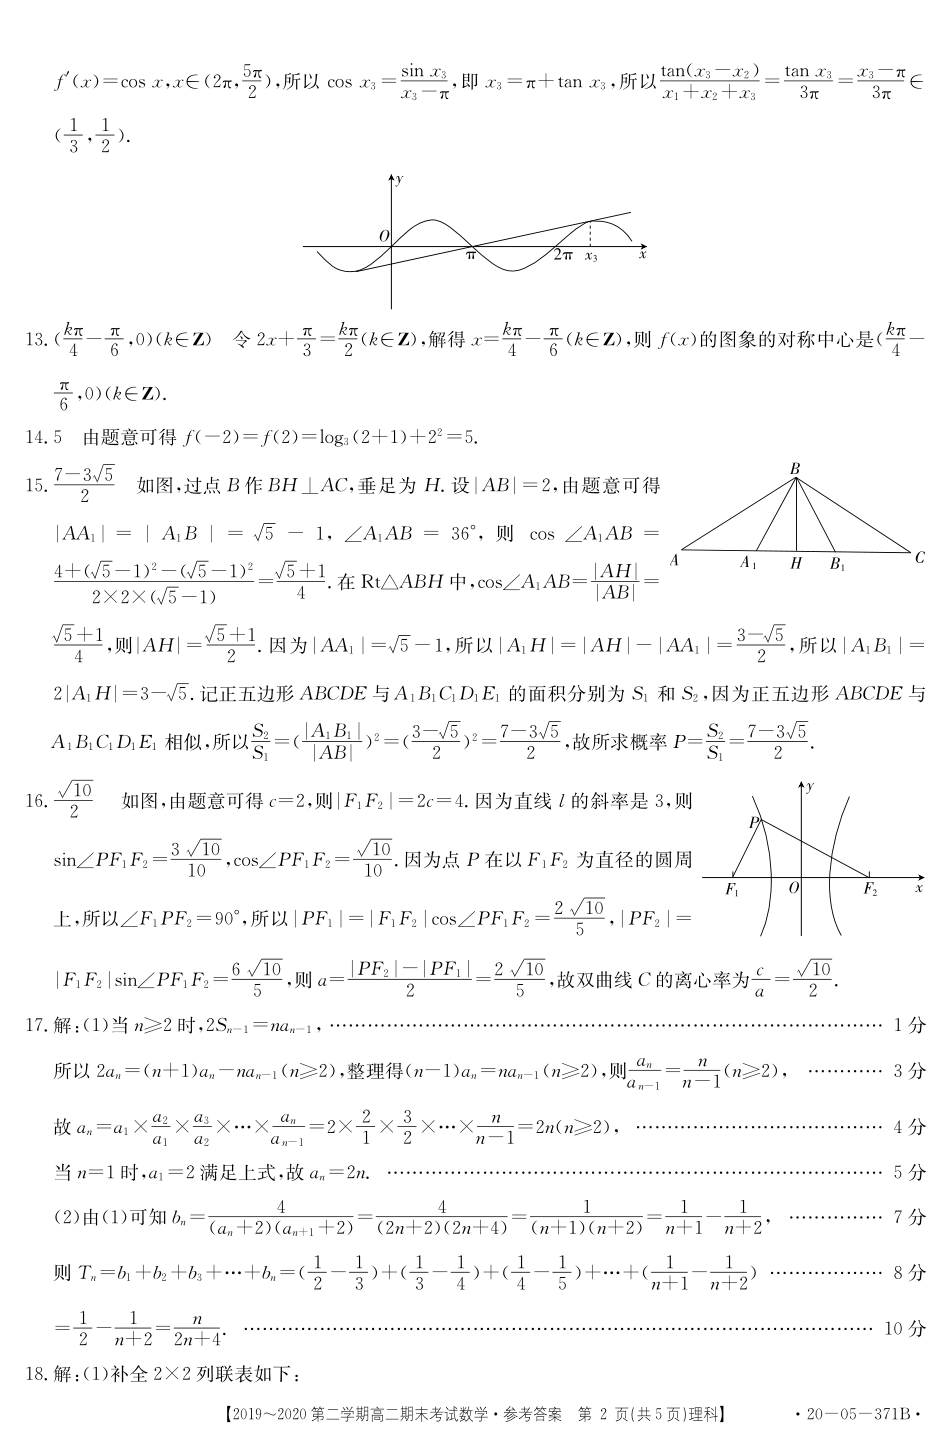 f′(x)=cos x,x∈(2π,5π/2),所以 cos x₃=sin x₃/(x₃−π),即 x₃=π+tan x₃,所以 tan(x₃−x₂)/(x₁+x₂+x₃)=tan x₃/3π=(x₃−π)/3π∈
(1/3,1/2).
y
O
π
2π
x₃
x
13.(kπ/4−π/6,0)(k∈Z) 令 2x+π/3=kπ/2(k∈Z),解得 x=kπ/4−π/6(k∈Z),则 f(x)的图象的对称中心是(kπ/4−
π/6,0)(k∈Z).
14.5 由题意可得 f(−2)=f(2)=log₃(2+1)+2²=5.
15.(7−3√5)/2 如图,过点 B 作 BH⊥AC,垂足为 H.设|AB|=2,由题意可得
|AA₁|=|A₁B|=√5−1,∠A₁AB=36°,则 cos ∠A₁AB=
(4+(√5−1)²−(√5−1)²)/(2×2×(√5−1))=(√5+1)/4.在 Rt△ABH 中,cos∠A₁AB=|AH|/|AB|=
B
A
A₁
H
B₁
C
(√5+1)/4,则|AH|=(√5+1)/2.因为|AA₁|=√5−1,所以|A₁H|=|AH|−|AA₁|=(3−√5)/2,所以|A₁B₁|=
2|A₁H|=3−√5.记正五边形 ABCDE 与 A₁B₁C₁D₁E₁ 的面积分别为 S₁ 和 S₂,因为正五边形 ABCDE 与
A₁B₁C₁D₁E₁ 相似,所以 S₂/S₁=(|A₁B₁|/|AB|)²=((3−√5)/2)²=(7−3√5)/2,故所求概率 P=S₂/S₁=(7−3√5)/2.
16.√10/2 如图,由题意可得 c=2,则|F₁F₂|=2c=4.因为直线 l 的斜率是 3,则
sin∠PF₁F₂=3√10/10,cos∠PF₁F₂=√10/10.因为点 P 在以 F₁F₂ 为直径的圆周
上,所以∠F₁PF₂=90°,所以|PF₁|=|F₁F₂|cos∠PF₁F₂=2√10/5,|PF₂|=
y
P
F₁
O
F₂
x
|F₁F₂|sin∠PF₁F₂=6√10/5,则 a=(|PF₂|−|PF₁|)/2=2√10/5,故双曲线 C 的离心率为 c/a=√10/2.
17.解:(1)当 n≥2 时,2Sₙ₋₁=naₙ₋₁,………………………………………… 1 分
所以 2aₙ=(n+1)aₙ−naₙ₋₁(n≥2),整理得(n−1)aₙ=naₙ₋₁(n≥2),则 aₙ/aₙ₋₁=n/(n−1)(n≥2),………… 3 分
故 aₙ=a₁×a₂/a₁×a₃/a₂×…×aₙ/aₙ₋₁=2×2/1×3/2×…×n/(n−1)=2n(n≥2),………………………… 4 分
当 n=1 时,a₁=2 满足上式,故 aₙ=2n.………………………………………… 5 分
(2)由(1)可知 bₙ=4/((aₙ+2)(aₙ₊₁+2))=4/((2n+2)(2n+4))=1/((n+1)(n+2))=1/(n+1)−1/(n+2),…………… 7 分
则 Tₙ=b₁+b₂+b₃+…+bₙ=(1/2−1/3)+(1/3−1/4)+(1/4−1/5)+…+(1/(n+1)−1/(n+2)) ……………… 8 分
=1/2−1/(n+2)=n/(2n+4).………………………………………… 10 分
18.解:(1)补全 2×2 列联表如下:
【2019～2020 第二学期高二期末考试数学·参考答案 第 2 页(共 5 页)理科】 ·20−05−371B·